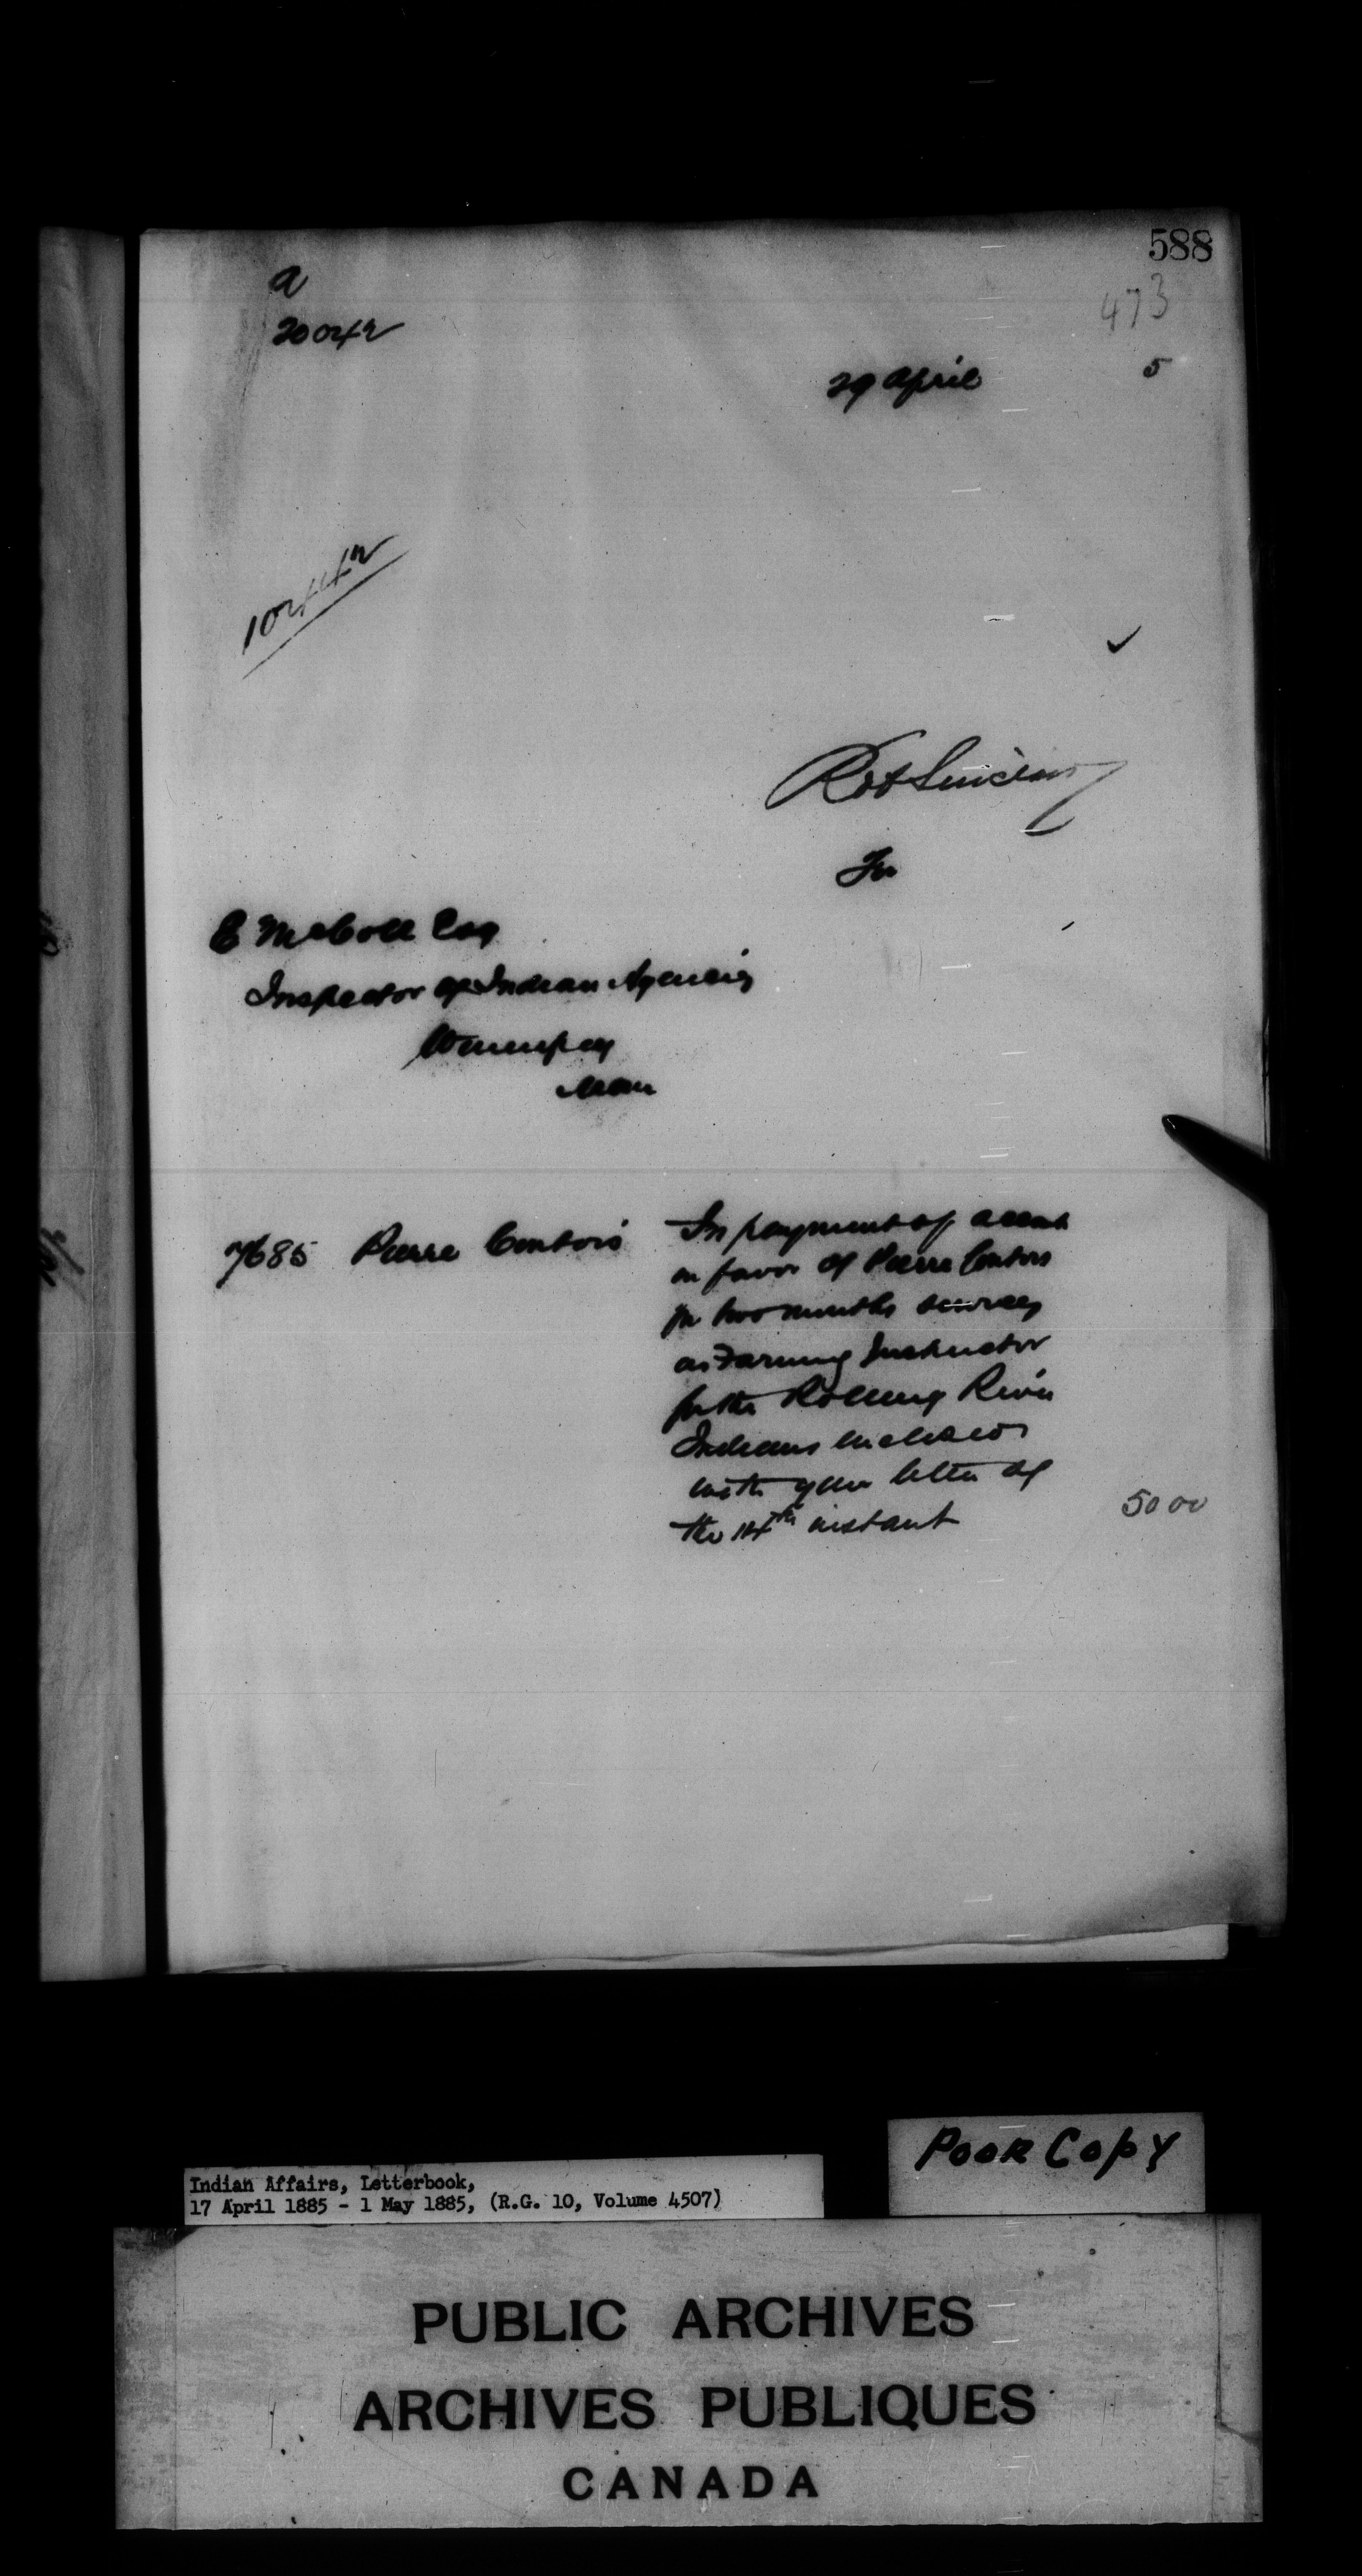 588
a
473
20042
29 April 5
Robt Sinclair
For
E McColl Esq
Inspector of Indian Agencies
Winnipeg
Man
7685 Pierre Contois In payment of accout
in favor of Pierre Contois
for two months services
as Farming Instructor
for the Rolling River
Indians enclosed
with your letter of
the 14th instant 50 00
Poor Copy
Indian Affairs, Letterbook,
17 April 1885 - 1 May 1885, (R.G. 10, Volume 4507)
PUBLIC ARCHIVES
ARCHIVES PUBLIQUES
CANADA